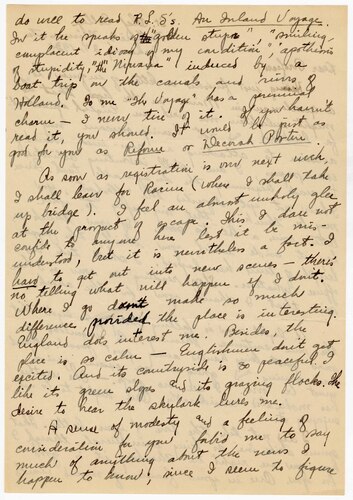 do well to read R.L.S's. An Inland Voyage.
In it he speaks of the "golden stupor", "smiling
complacent idiocy of my condition", "apotheosis
of stupidity," the "Nirvana" induced by a
boat trip on the canals and rivers of
Holland. To me "The Voyage" has a perennial
charm — I never tire of it. If you haven't
read it, you should. It would be just as
good for you as Refonse or Decorah Posten.
As soon as registration is over next week,
I shall leave for Racine (where I shall take
up bridge). I feel an almost unholy glee
at the prospect of escape. This I dare not
confide to anyone here lest it be mis-
understood, but it is nevertheless a fact. I
have to get out into new scenes — there's
no telling what will happen if I don't.
Where I go doesn't make so much
difference provided the place is interesting.
England does interest me. Besides, the
place is so calm — Englishmen don't get
excited. And its countryside is so peaceful. I
like its green slopes and its grazing flocks. The
desire to hear the skylark lures me.
A sense of modesty and a feeling of
consideration for you forbid me to say
much of anything about the news I
happen to know, since I seem to figure